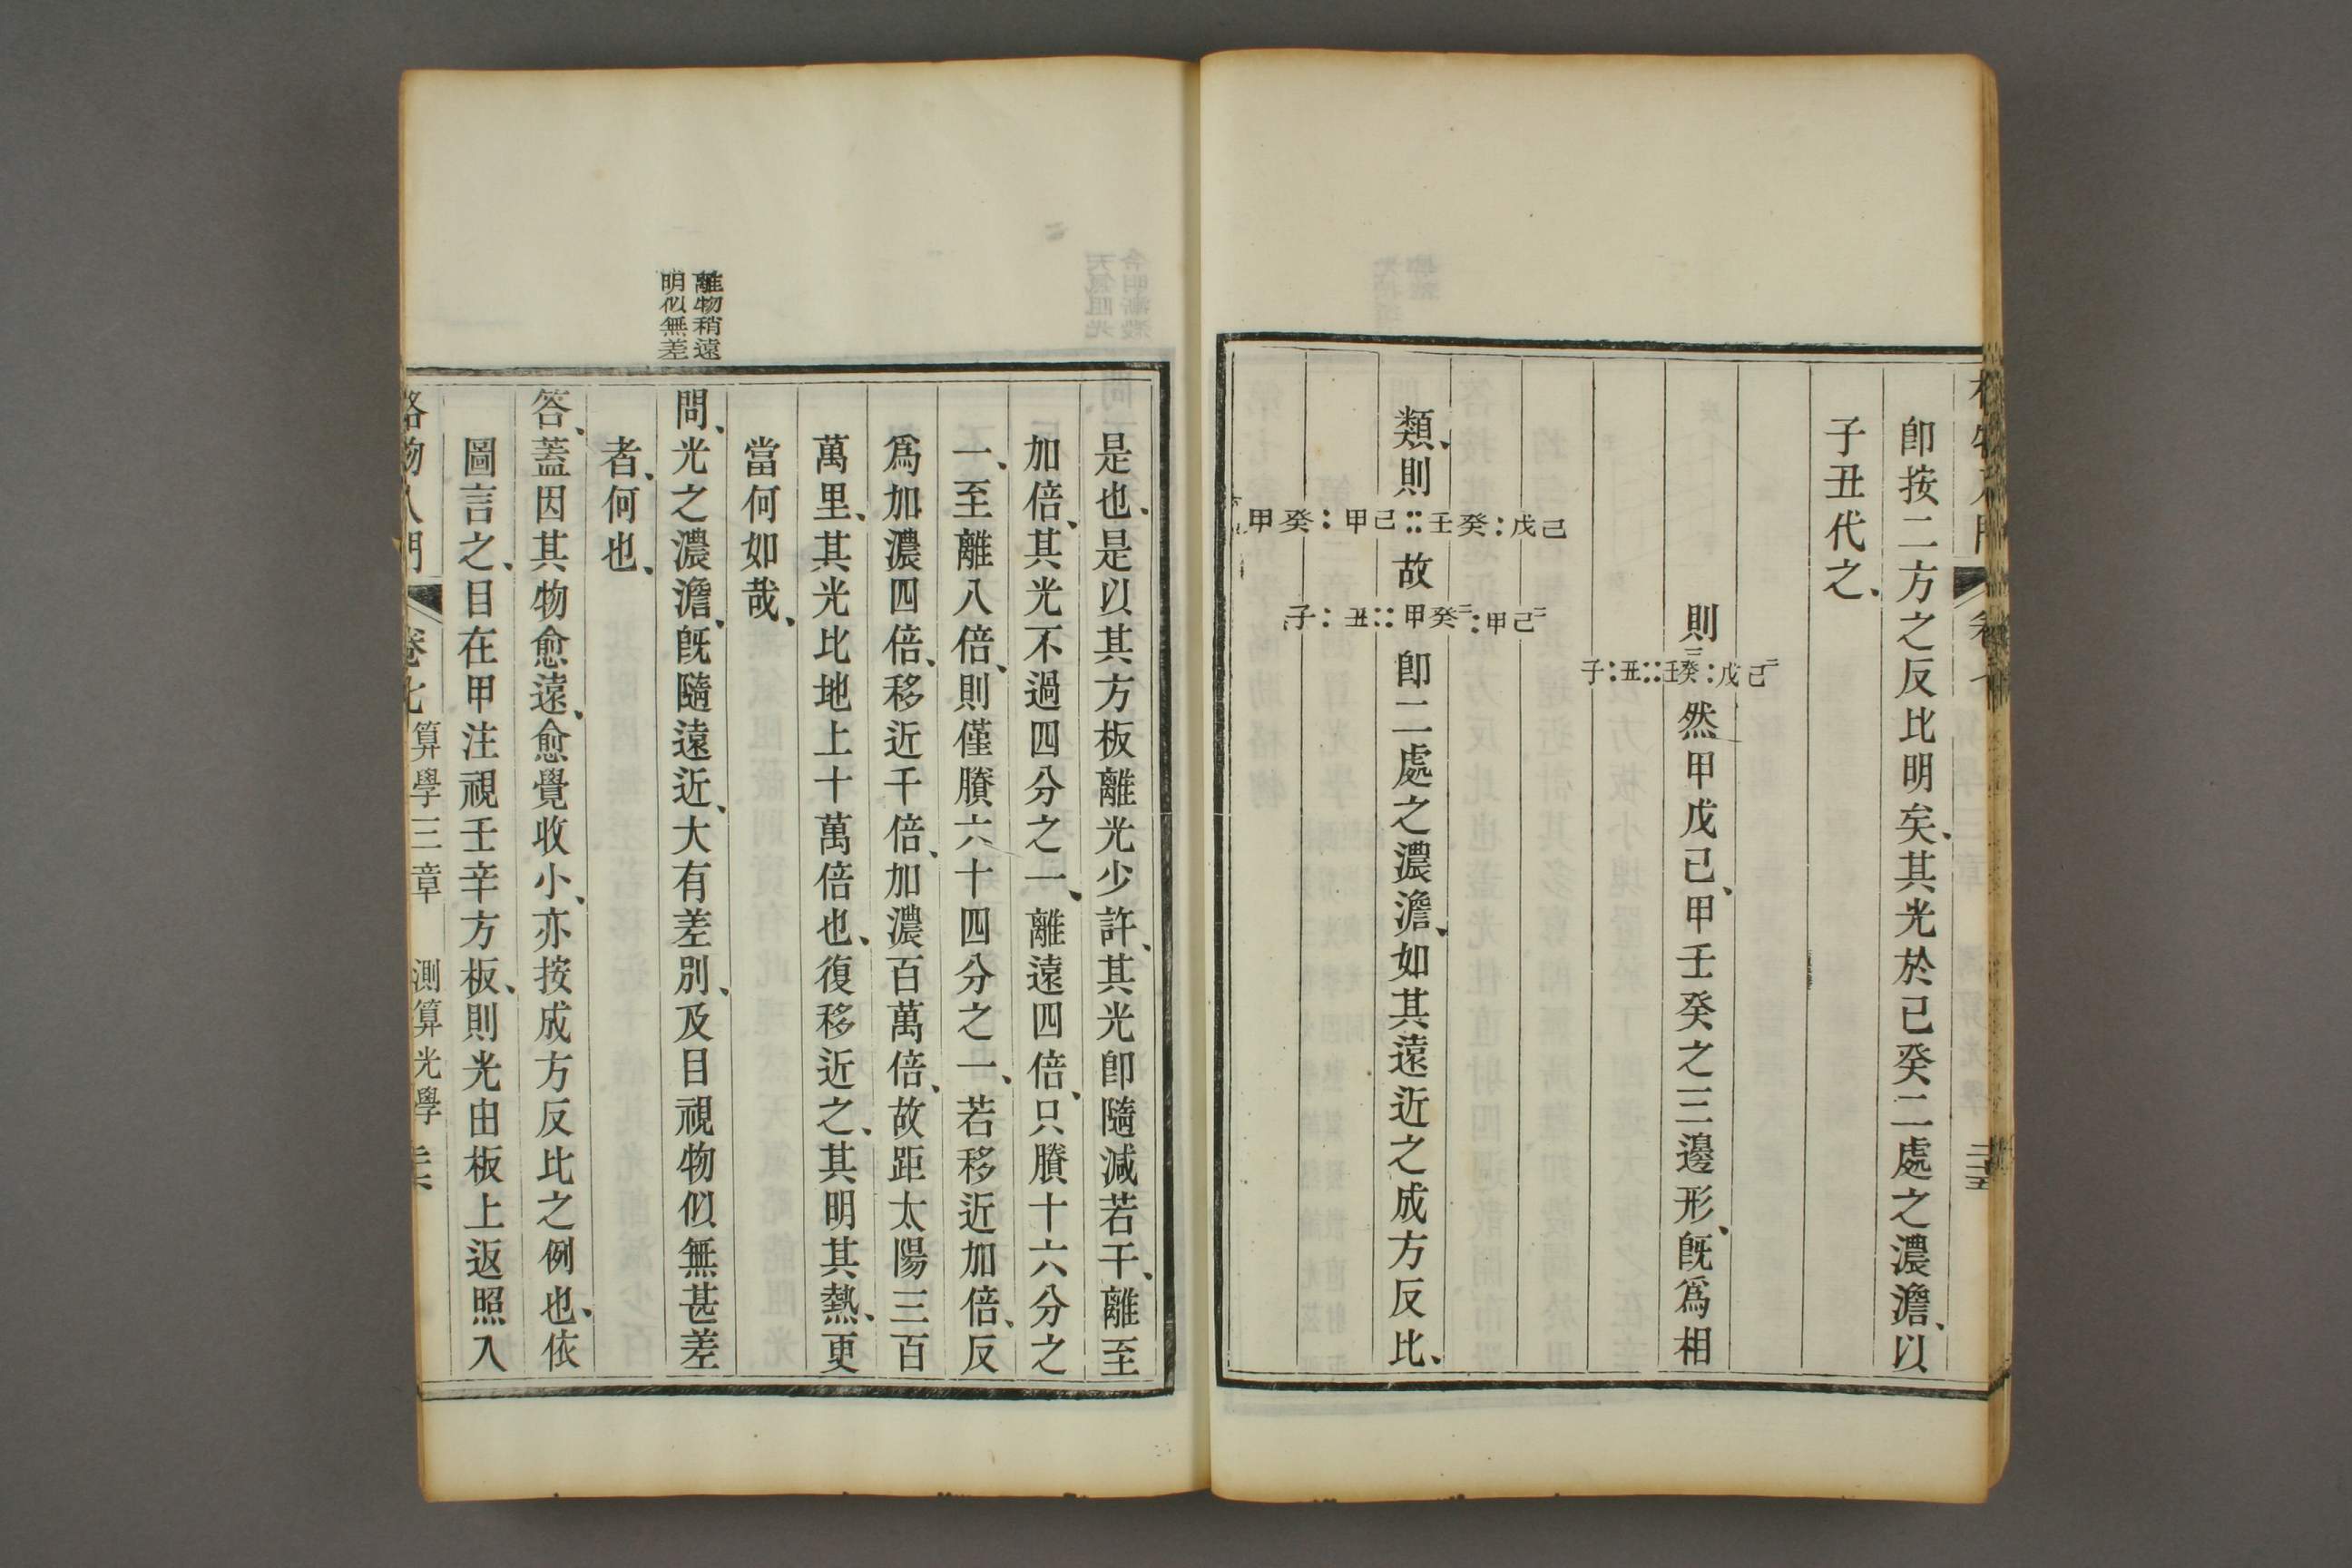 卽按二方之反比明矣、其光於己癸二處之濃澹、以
子丑代之、
則
子:丑::壬癸二:戊己二
然甲戊己、甲壬癸之三邊形、旣爲相
類、則
甲癸:甲己::壬癸:戊己
故
子:丑::甲癸二:甲己二
卽二處之濃澹、如其遠近之成方反比、
是也、是以其方板離光少許、其光卽隨減若干、離至
加倍、其光不過四分之一、離遠四倍、只賸十六分之
一、至離八倍、則僅賸六十四分之一、若移近加倍、反
爲加濃四倍、移近千倍、加濃百萬倍、故距太陽三百
萬里、其光比地上十萬倍也、復移近之、其明其熱、更
當何如哉、
離物稍遠
明似無差
問、光之濃澹、旣隨遠近、大有差別、及目視物似無甚差
者、何也、
答、蓋因其物愈遠、愈覺收小、亦按成方反比之例也、依
圖言之、目在甲注視壬辛方板、則光由板上返照入
格物入門 卷七 算學三章 測算光學 二十六